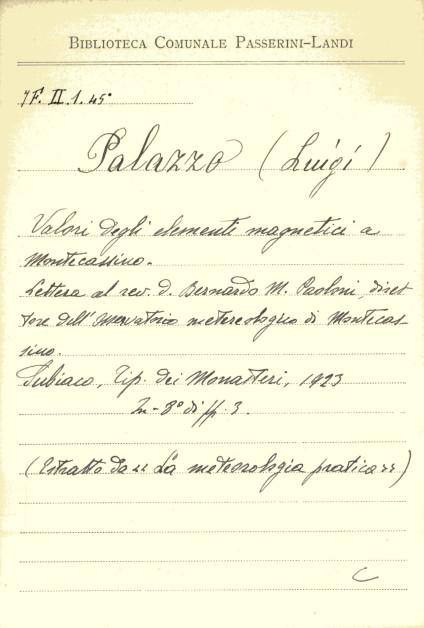 BIBLIOTECA COMUNALE PASSERINI-LANDI
7F. II. 1. 45°
Palazzo (Luigi)
Valori degli elementi magnetici a
Montecassino.
Lettera al rev. D. Bernardo M. Paoloni, diret-
tore dell'osservatorio metereologico di Montecas-
sino.
Subiaco, Tip. dei Monasteri, 1923
In-8° di pp. 3.
(Estratto da "La meteorologia pratica")
C